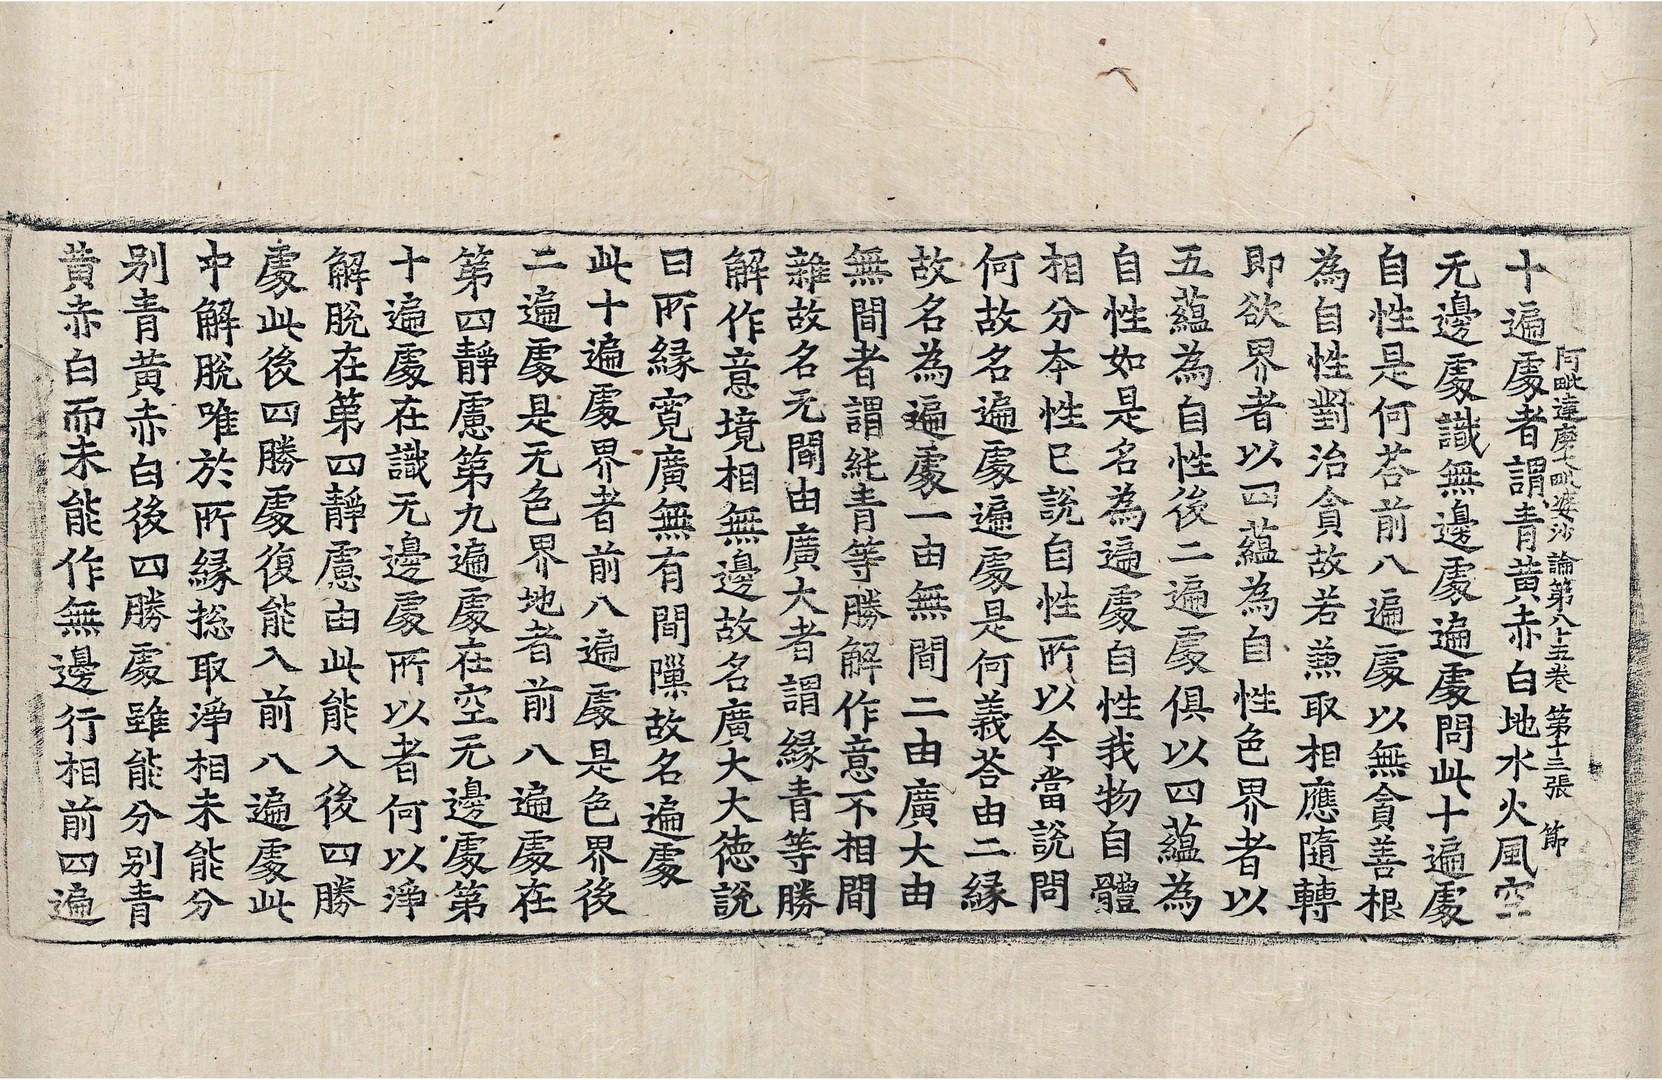 阿毗達磨大毗婆沙論第八十五卷 第十三張 節
十遍處者謂青黃赤白地水火風空
无邊處識無邊處遍處問此十遍處
自性是何荅前八遍處以無貪善根
為自性對治貪故若兼取相應隨轉
即欲界者以四蘊為自性色界者以
五蘊為自性後二遍處俱以四蘊為
自性如是名為遍處自性我物自體
相分本性已說自性所以今當說問
何故名遍處遍處是何義荅由二緣
故名為遍處一由無間二由廣大由
無間者謂純青等勝解作意不相間
雜故名无間由廣大者謂緣青等勝
解作意境相無邊故名廣大大德說
曰所緣寬廣無有間隟故名遍處
此十遍處界者前八遍處是色界後
二遍處是无色界地者前八遍處在
第四靜慮第九遍處在空无邊處第
十遍處在識无邊處所以者何以淨
解脫在第四靜慮由此能入後四勝
處此後四勝處復能入前八遍處此
中解脫唯於所緣捴取淨相未能分
別青黃赤白後四勝處雖能分別青
黃赤白而未能作無邊行相前四遍